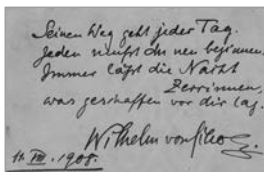 Seinen Weg geht jeder Tag.
Jeden mußt du neu beginnen.
Immer läßt die Nacht
zerrinnen,
was geschaffen vor dir lag.
Wilhelm von
1908.